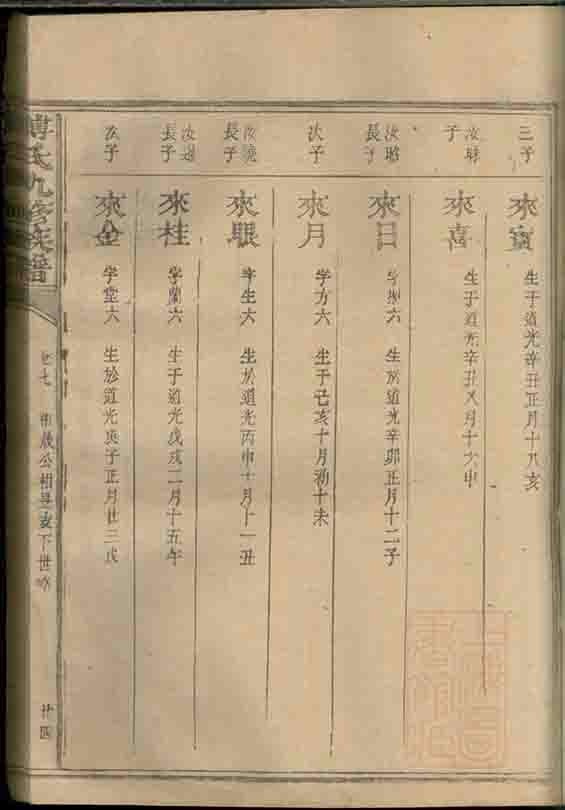 三子
來寳
生于道光辛丑正月十八亥
子
來喜
生于道光辛丑又月十六申
汝昭長子
來日
六 生於道光辛卯正月十二子
次子
來月
字方六 生于己亥十月初十未
長子
來眼
字生六 生於道光丙申十月十一丑
長子
來桂
字蘭六 生于道光戊戌二月十五午
次子
來金
字堂六 生於道光庚子正月廿三戌
傅氏九修族譜
卷七
公相 下世
廿四